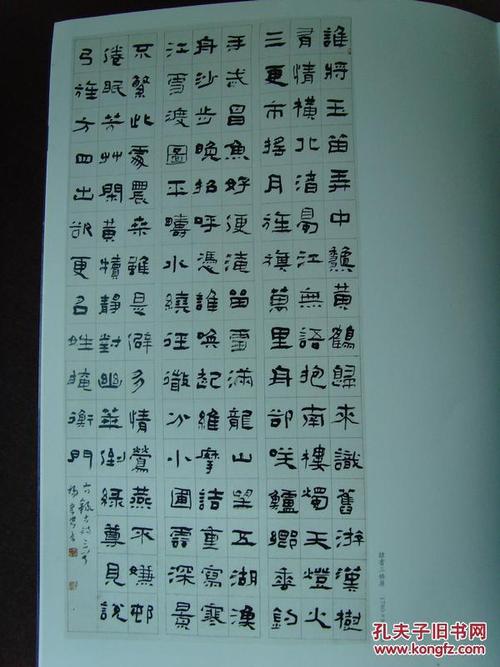 誰將玉笛弄中龝黃鶴歸來識舊游漢樹
有情橫北渚蜀江無語抱南樓燭天燈火
三更市搖月旌旗萬里舟卻咲鱸鄉垂釣
手武昌魚好便淹留雪滿龍山望五湖漢
舟沙步晚招呼憑誰喚起維摩詰重寫寒
江雪渡圖平疇水繞徑微分小圃雲深景
不繁此處農桑雖是僻多情鶯燕不嫌邨
倦眠芳艸閑黃犢靜對幽華倒綠尊見說
弓旌方四出卻更名姓掩衡門
隸書三條屏
孔夫子旧书网
www.kongfz.com